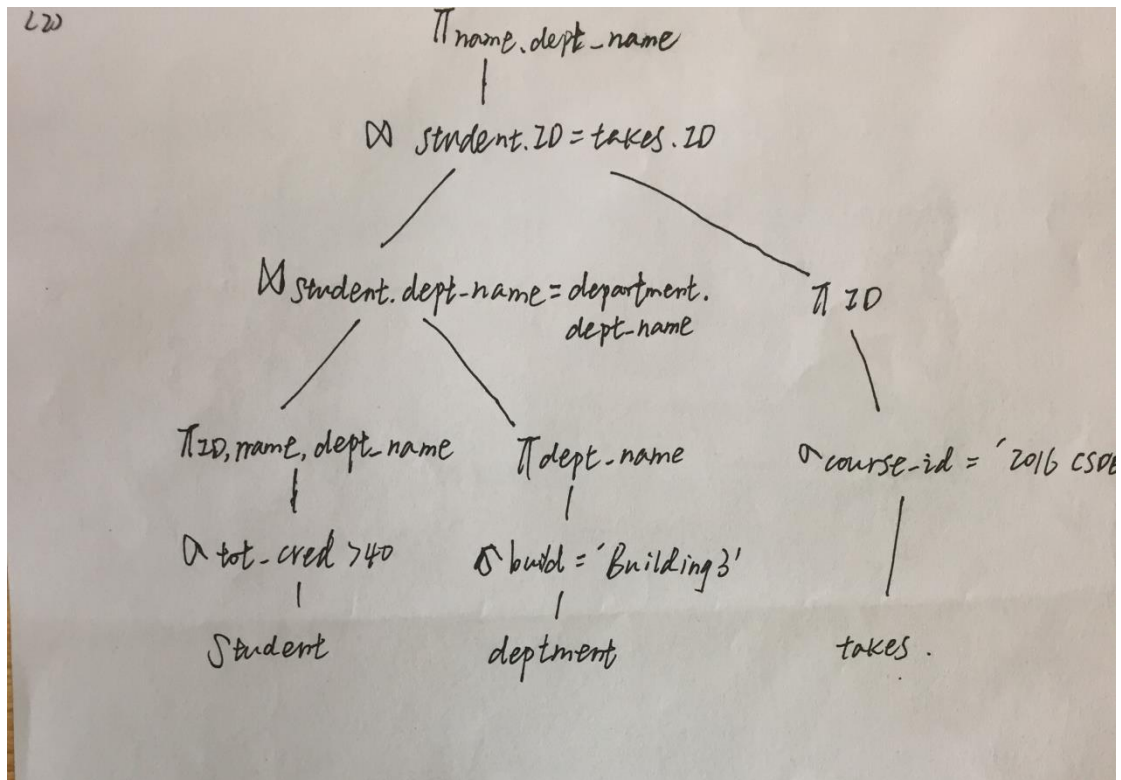 (2)
π name, dept_name
⋈ student.ID = takes.ID
⋈ student.dept_name = department.
dept_name
π ID
π ID, name, dept_name
π dept_name
σ course_id = '2016 CSDB
σ tot_cred >40
σ build = 'Building3'
Student
deptment
takes.